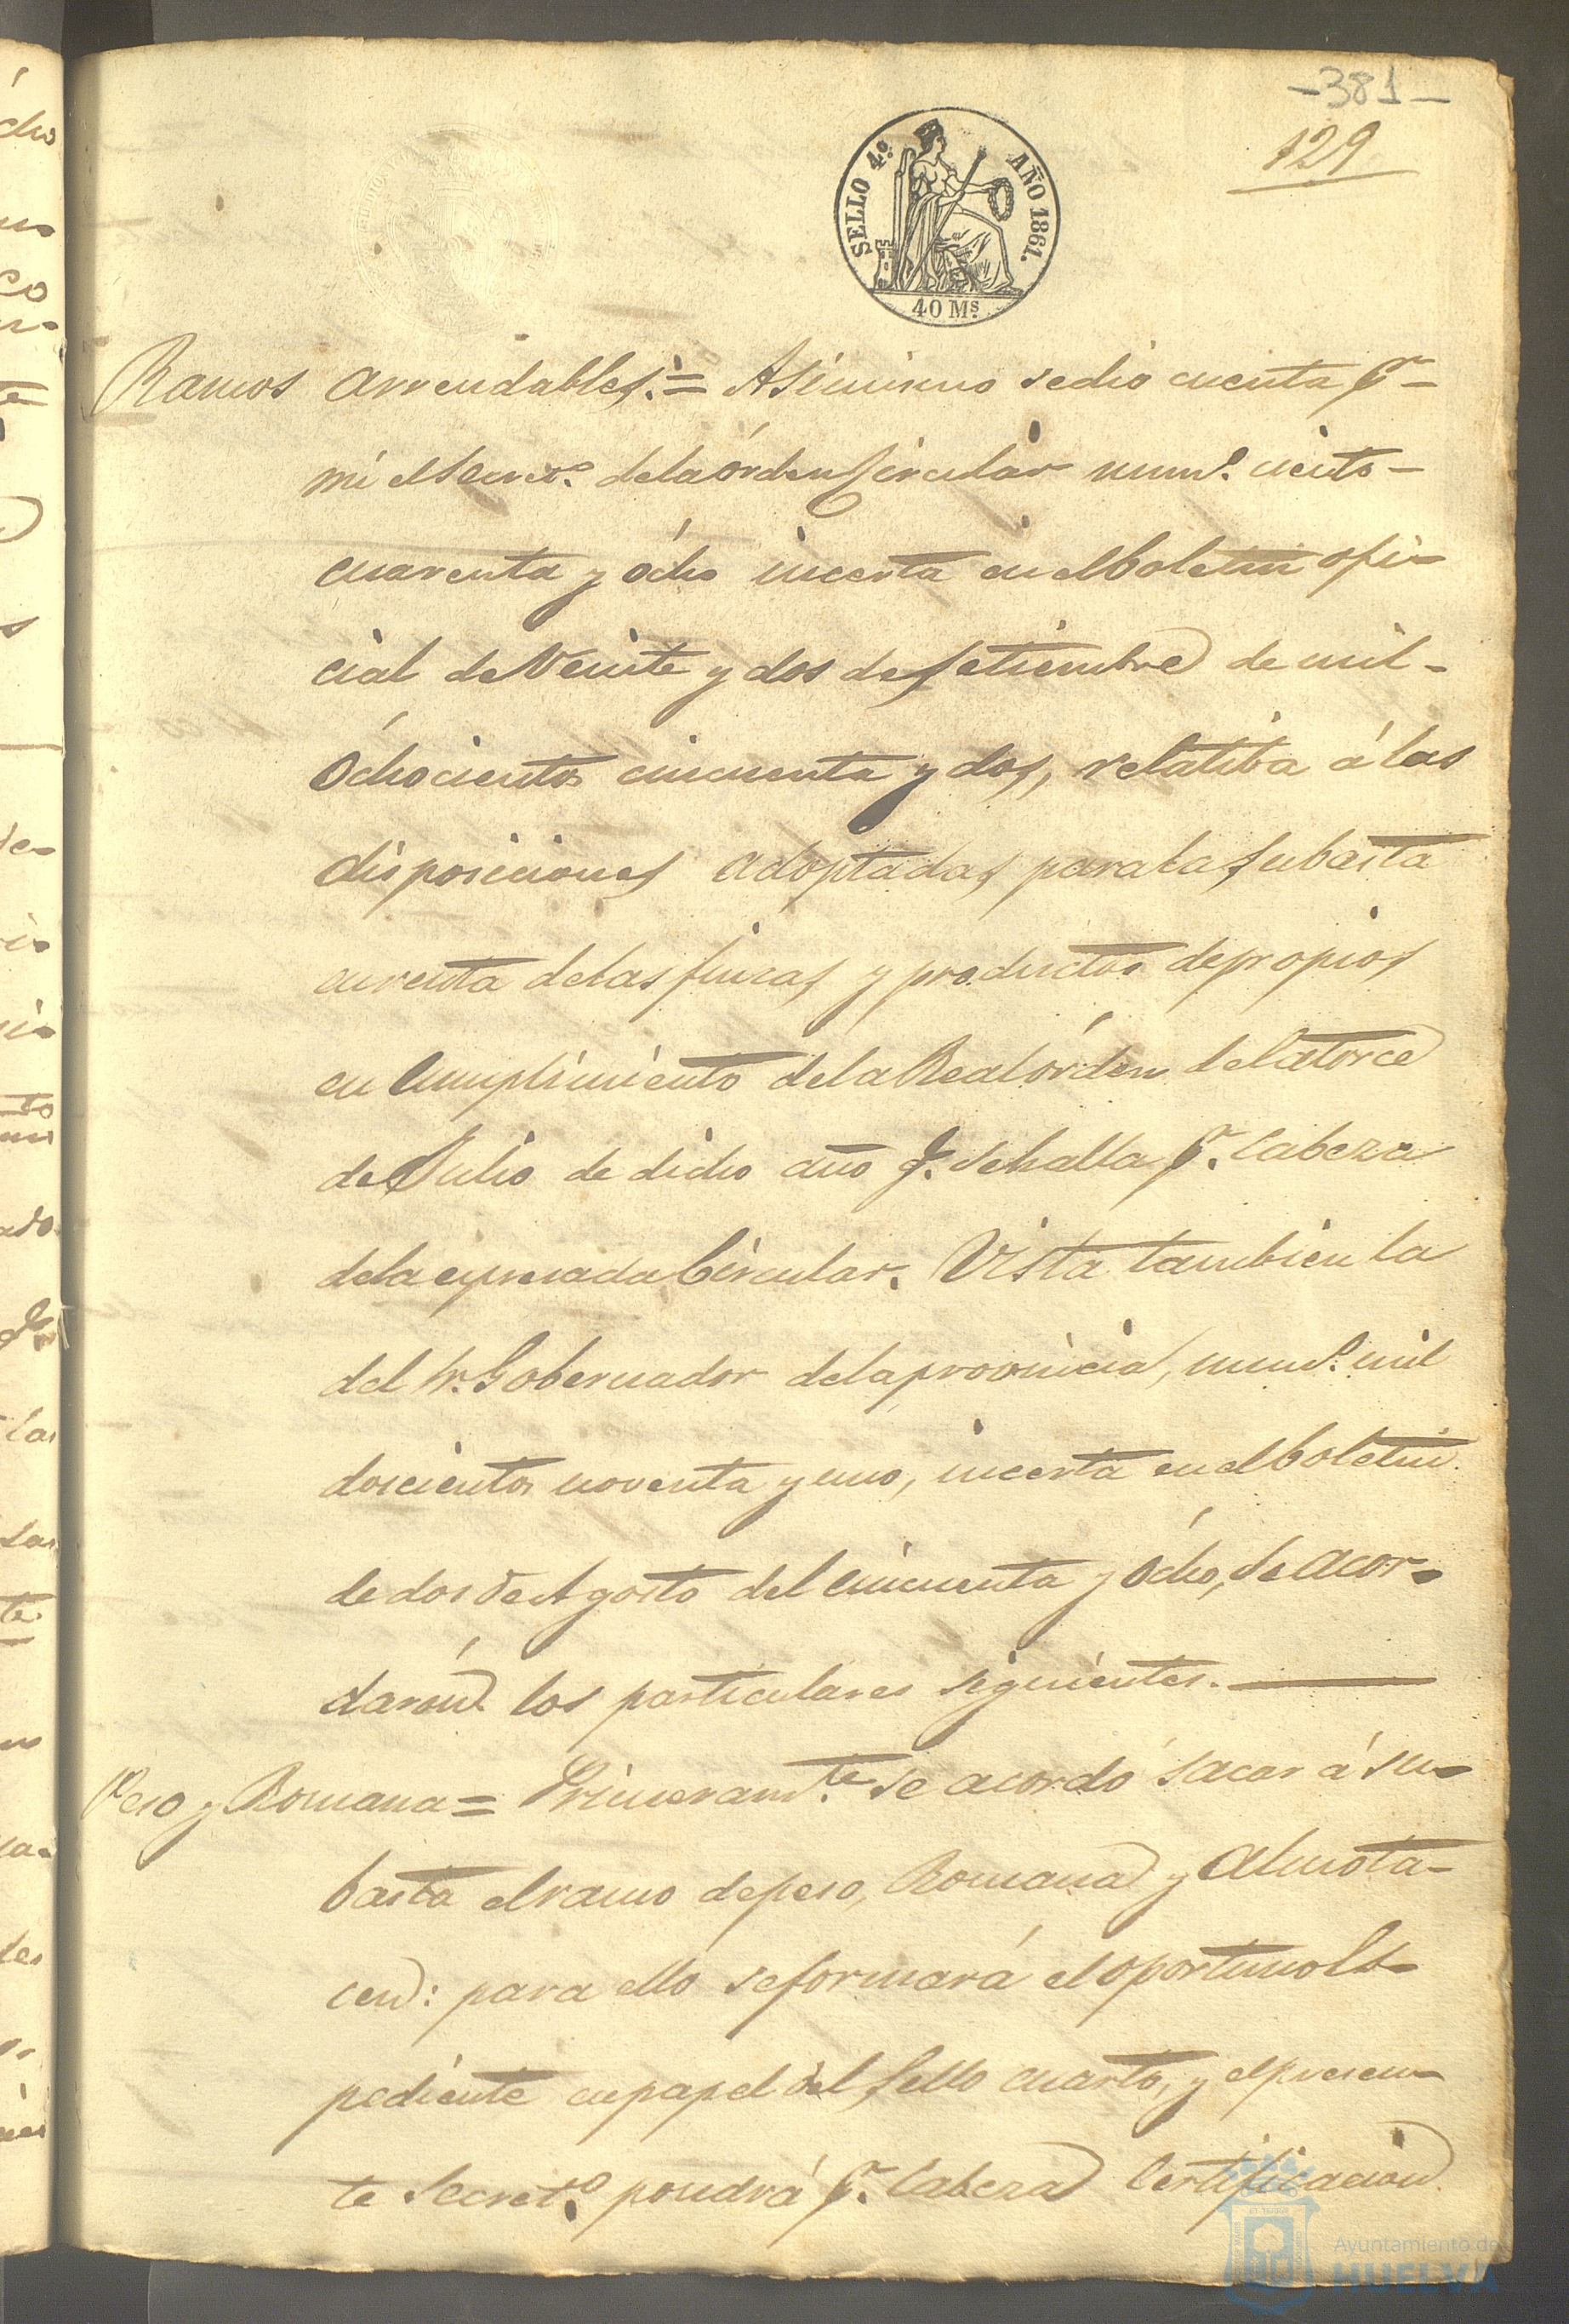 -381-
129
SELLO 4º AÑO 1861.
40 Mˢ
Ramos arrendables.= Asimismo se dio cuenta pʳ
mi el Secretº de la órden Circular numº ciento
cuarenta y ócho incerta en el boletin ofi-
cial de Veinte y dos de Setiembre de mil
óchocientos cincuenta y dos, relatiba á las
disposiciones adoptadas para la subasta
en renta de las fincas y productos de propios
en Cumplimiento de la Real órden del Catorce
de Julio de dicho año q. se halla pʳ Cabeza
de la expresada Circular. Vista tambien la
del Sʳ Gobernador de la provincia, numº mil
doscientos noventa y uno, incerta en el boletin
de dos de Agosto del Cincuenta y ócho, se acor-
darón los particulares siguientes.
Peso y Romana = Primeramᵗᵉ se acordó sacar á su-
basta el ramo de peso, Romana y Almota-
cen: para ello se formará el oportuno Es-
pediente en papel del Sello cuarto, y el presen-
te Secretº pondrá pʳ Cabeza Certificacion
Ayuntamiento de
HUELVA